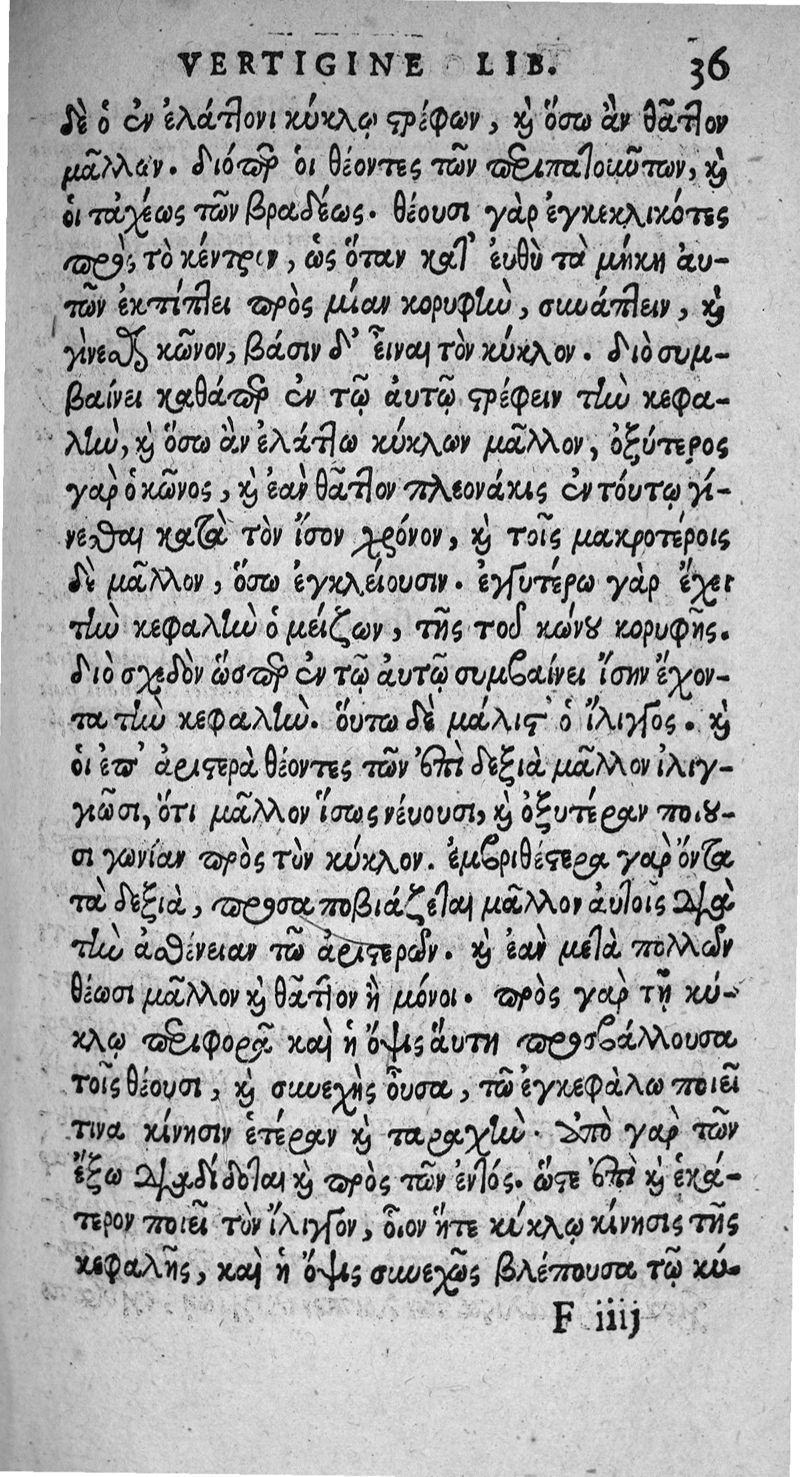 VERTIGINE LIB. 36
δὲ ὁ ἐν ἐλάττονι κύκλῳ στρέφων, καὶ ὅσω ἂν θᾶττον
μᾶλλον. διόπερ οἱ θέοντες τῶν περιπατούντων, καὶ
οἱ ταχέως τῶν βραδέως. θέουσι γὰρ ἐγκεκλικότες
πρὸς τὸ κέντρον, ὡς ὅταν κατ' ἐυθὺ τὰ μήκη ἀυ-
τῶν ἐκτίπτει πρὸς μίαν κορυφὴν, συνάπτειν, καὶ
γίνεσθαι κῶνον, βάσιν δ' εἶναι τὸν κύκλον. διὸ συμ-
βαίνει καθάπερ ἐν τῷ ἀυτῷ στρέφειν τὴν κεφα-
λὴν, καὶ ὅσω ἂν ἐλάττω κύκλων μᾶλλον, ὀξύτερος
γὰρ ὁ κῶνος, καὶ ἐὰν θᾶττον πλεονάκις ἐν τούτῳ γί-
νεσθαι κατὰ τὸν ἴσον χρόνον, καὶ τοῖς μακροτέροις
δὲ μᾶλλον, ὅσω ἐγκλείουσιν. ἐγγυτέρω γὰρ ἔχει
τὴν κεφαλὴν ὁ μείζων, τῆς τοῦ κώνου κορυφῆς.
διὸ σχεδὸν ὥσπερ ἐν τῷ ἀυτῷ συμβαίνει ἴσην ἔχον-
τα τὴν κεφαλὴν. ὅυτω δὲ μάλιστ' ὁ ἴλιγγος. καὶ
οἱ ἐπ' ἀριστερὰ θέοντες τῶν ἐπὶ δεξιὰ μᾶλλον ἰλιγ-
γιῶσι, ὅτι μᾶλλον ἴσως νέυουσι, καὶ ὀξυτέραν ποιου-
σι γωνίαν πρὸς τὸν κύκλον. ἐμβριθέστερα γὰρ ὄντα
τὰ δεξιὰ, προσαποβιάζεται μᾶλλον ἀυτοῖς διὰ
τὴν ἀσθένειαν τῶ ἀριστερῶν. καὶ ἐὰν μετὰ πολλῶν
θέωσι μᾶλλον καὶ θᾶττον ἢ μόνοι. πρὸς γὰρ τῇ κύ-
κλῳ περιφορᾷ καὶ ἡ ὄψις ἅυτη προσβάλλουσα
τοῖς θέουσι, καὶ συνεχὴς οὖσα, τῶ ἐγκεφάλω ποιεῖ
τινα κίνησιν ἑτέραν καὶ ταραχὴν. ὑπὸ γὰρ τῶν
ἔξω διαδίδοται καὶ πρὸς τῶν ἐντός. ὥστε ἐπὶ καὶ ἑκά-
τερον ποιεῖ τὸν ἴλιγγον, ὅιον ἥτε κύκλῳ κίνησις τῆς
κεφαλῆς, καὶ ἡ ὄψις συνεχῶς βλέπουσα τῷ κύ-
F iiij